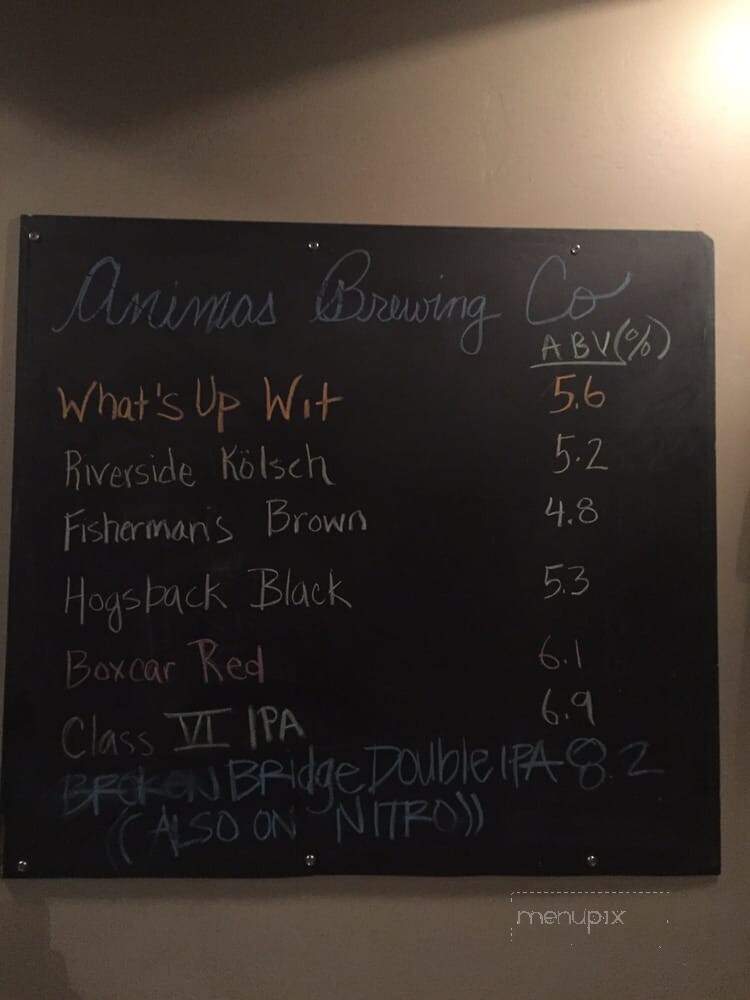 Animas Brewing Co
ABV(%)
What's Up Wit 5.6
Riverside Kölsch 5.2
Fisherman's Brown 4.8
Hogsback Black 5.3
Boxcar Red 6.1
Class VI IPA 6.9
BROKEN BRidge Double IPA 8.2
((ALSO ON NITRO))
menupix